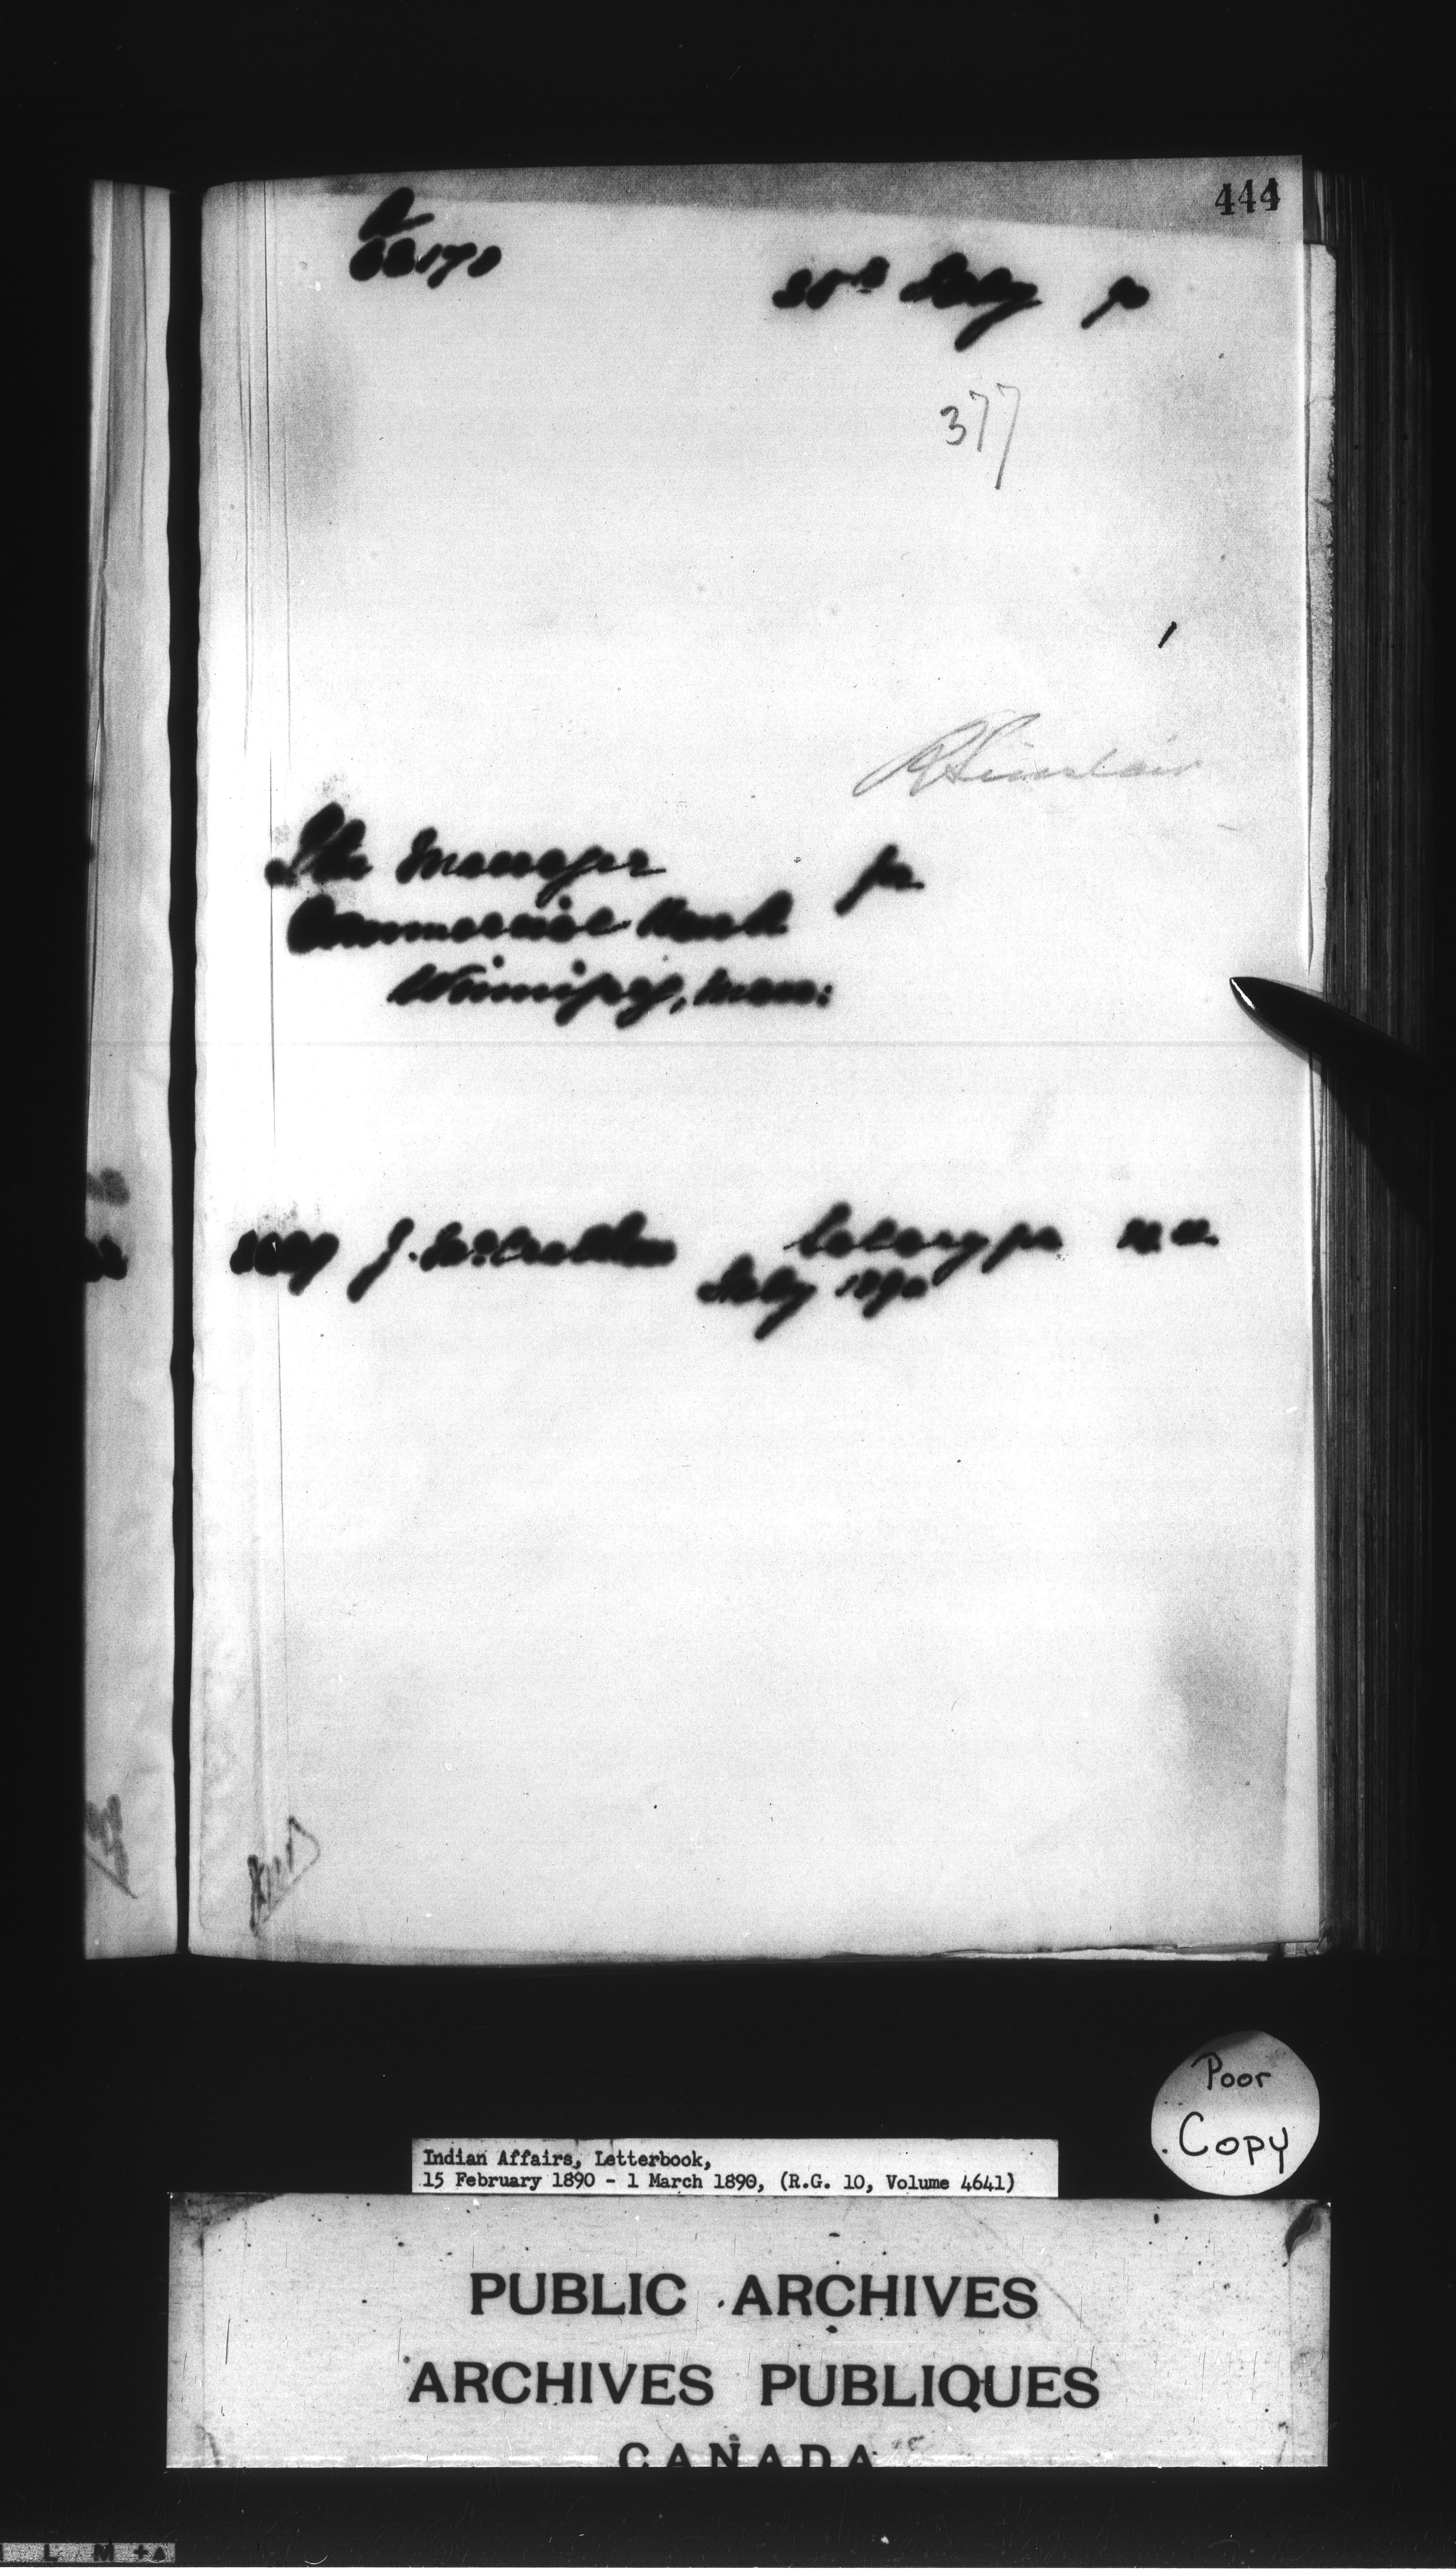 444
28th Feby 90
377
R Sinclair
The Manager for
Commercial Bank
Winnipeg, Man:
J. McCrellan
Feby 1890
Poor
Copy
Indian Affairs, Letterbook,
15 February 1890 - 1 March 1890, (R.G. 10, Volume 4641)
PUBLIC ARCHIVES
ARCHIVES PUBLIQUES
CANADA
L M